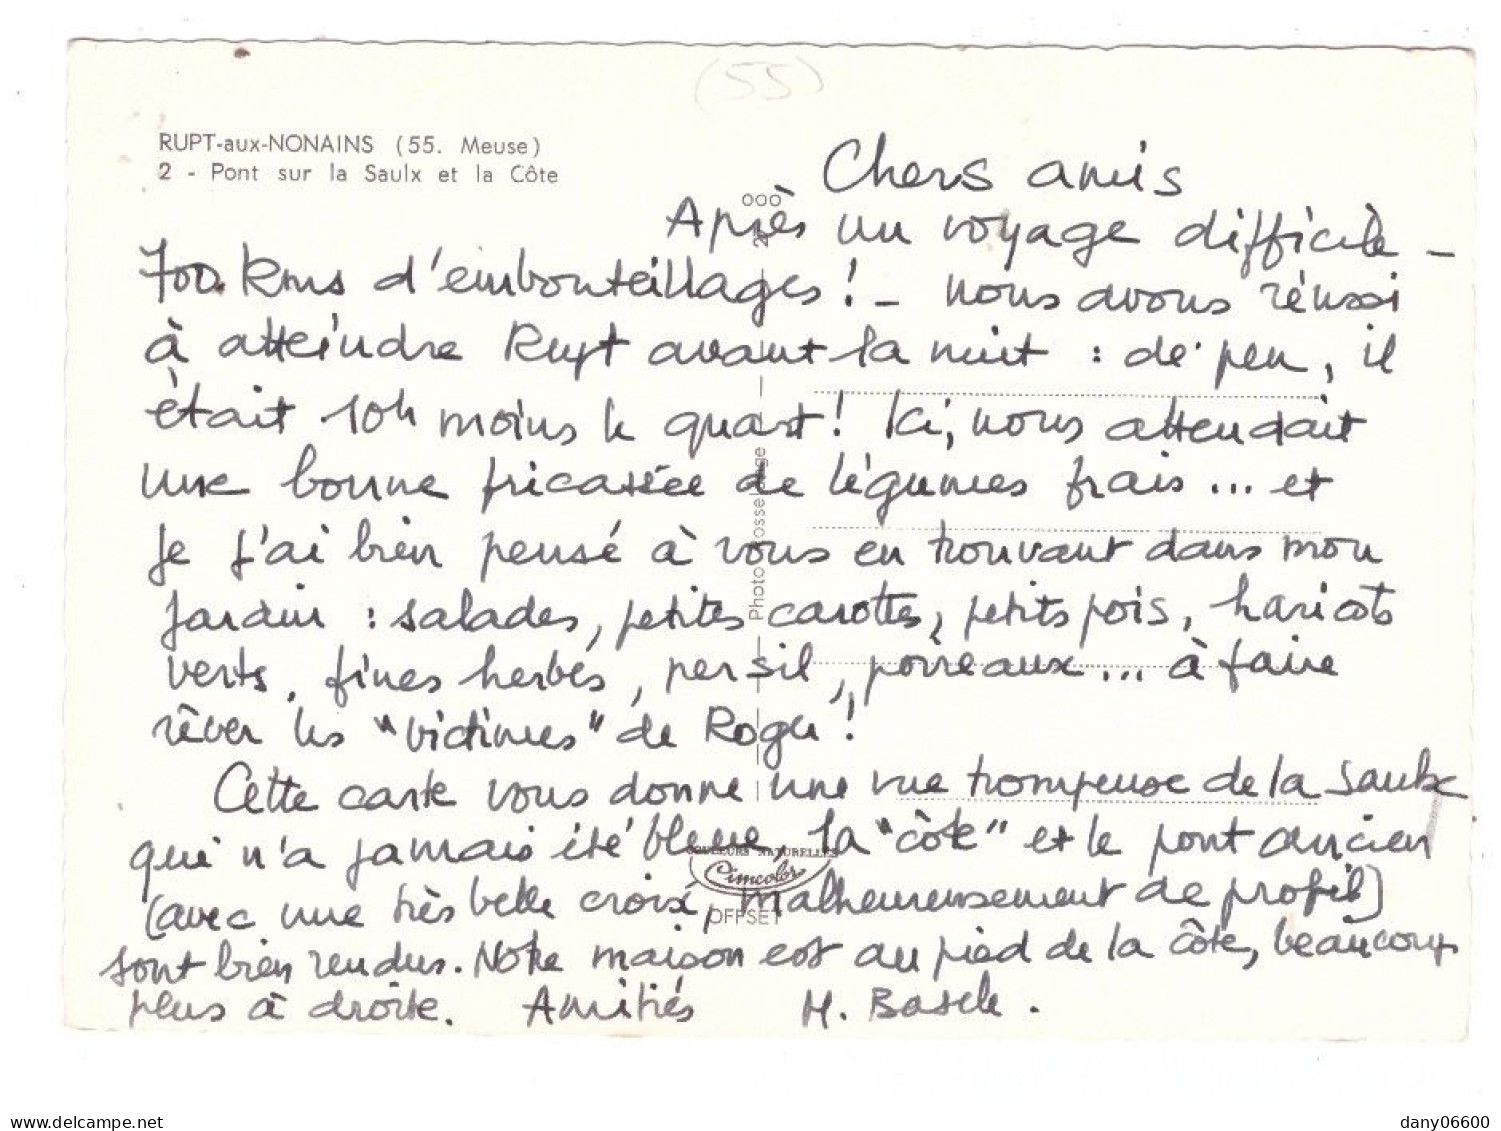 (55)
RUPT-aux-NONAINS (55. Meuse)
2 - Pont sur la Saulx et la Côte
Chers amis
Après un voyage difficile -
700 kms d'embouteillages ! - nous avons réussi
à atteindre Rupt avant la nuit : de peu, il
était 10h moins le quart ! Ici, nous attendait
une bonne fricassée de légumes frais... et
je j'ai bien pensé à vous en trouvant dans mon
jardin : salades, petites carottes, petits pois, haricots
verts, fines herbes, persil, poireaux... à faire
rêver les "victimes" de Roger !
Cette carte vous donne une vue trompeuse de la Saulx
qui n'a jamais été bleue, la "côte" et le pont ancien
(avec une très belle croix, malheureusement de profil)
sont bien rendus. Notre maison est au pied de la côte, beaucoup
plus à droite. Amitiés M. Basele.
OOO
Photo
COULEURS NATURELLES
Cimcolor
OFFSET
www.delcampe.net
dany06600